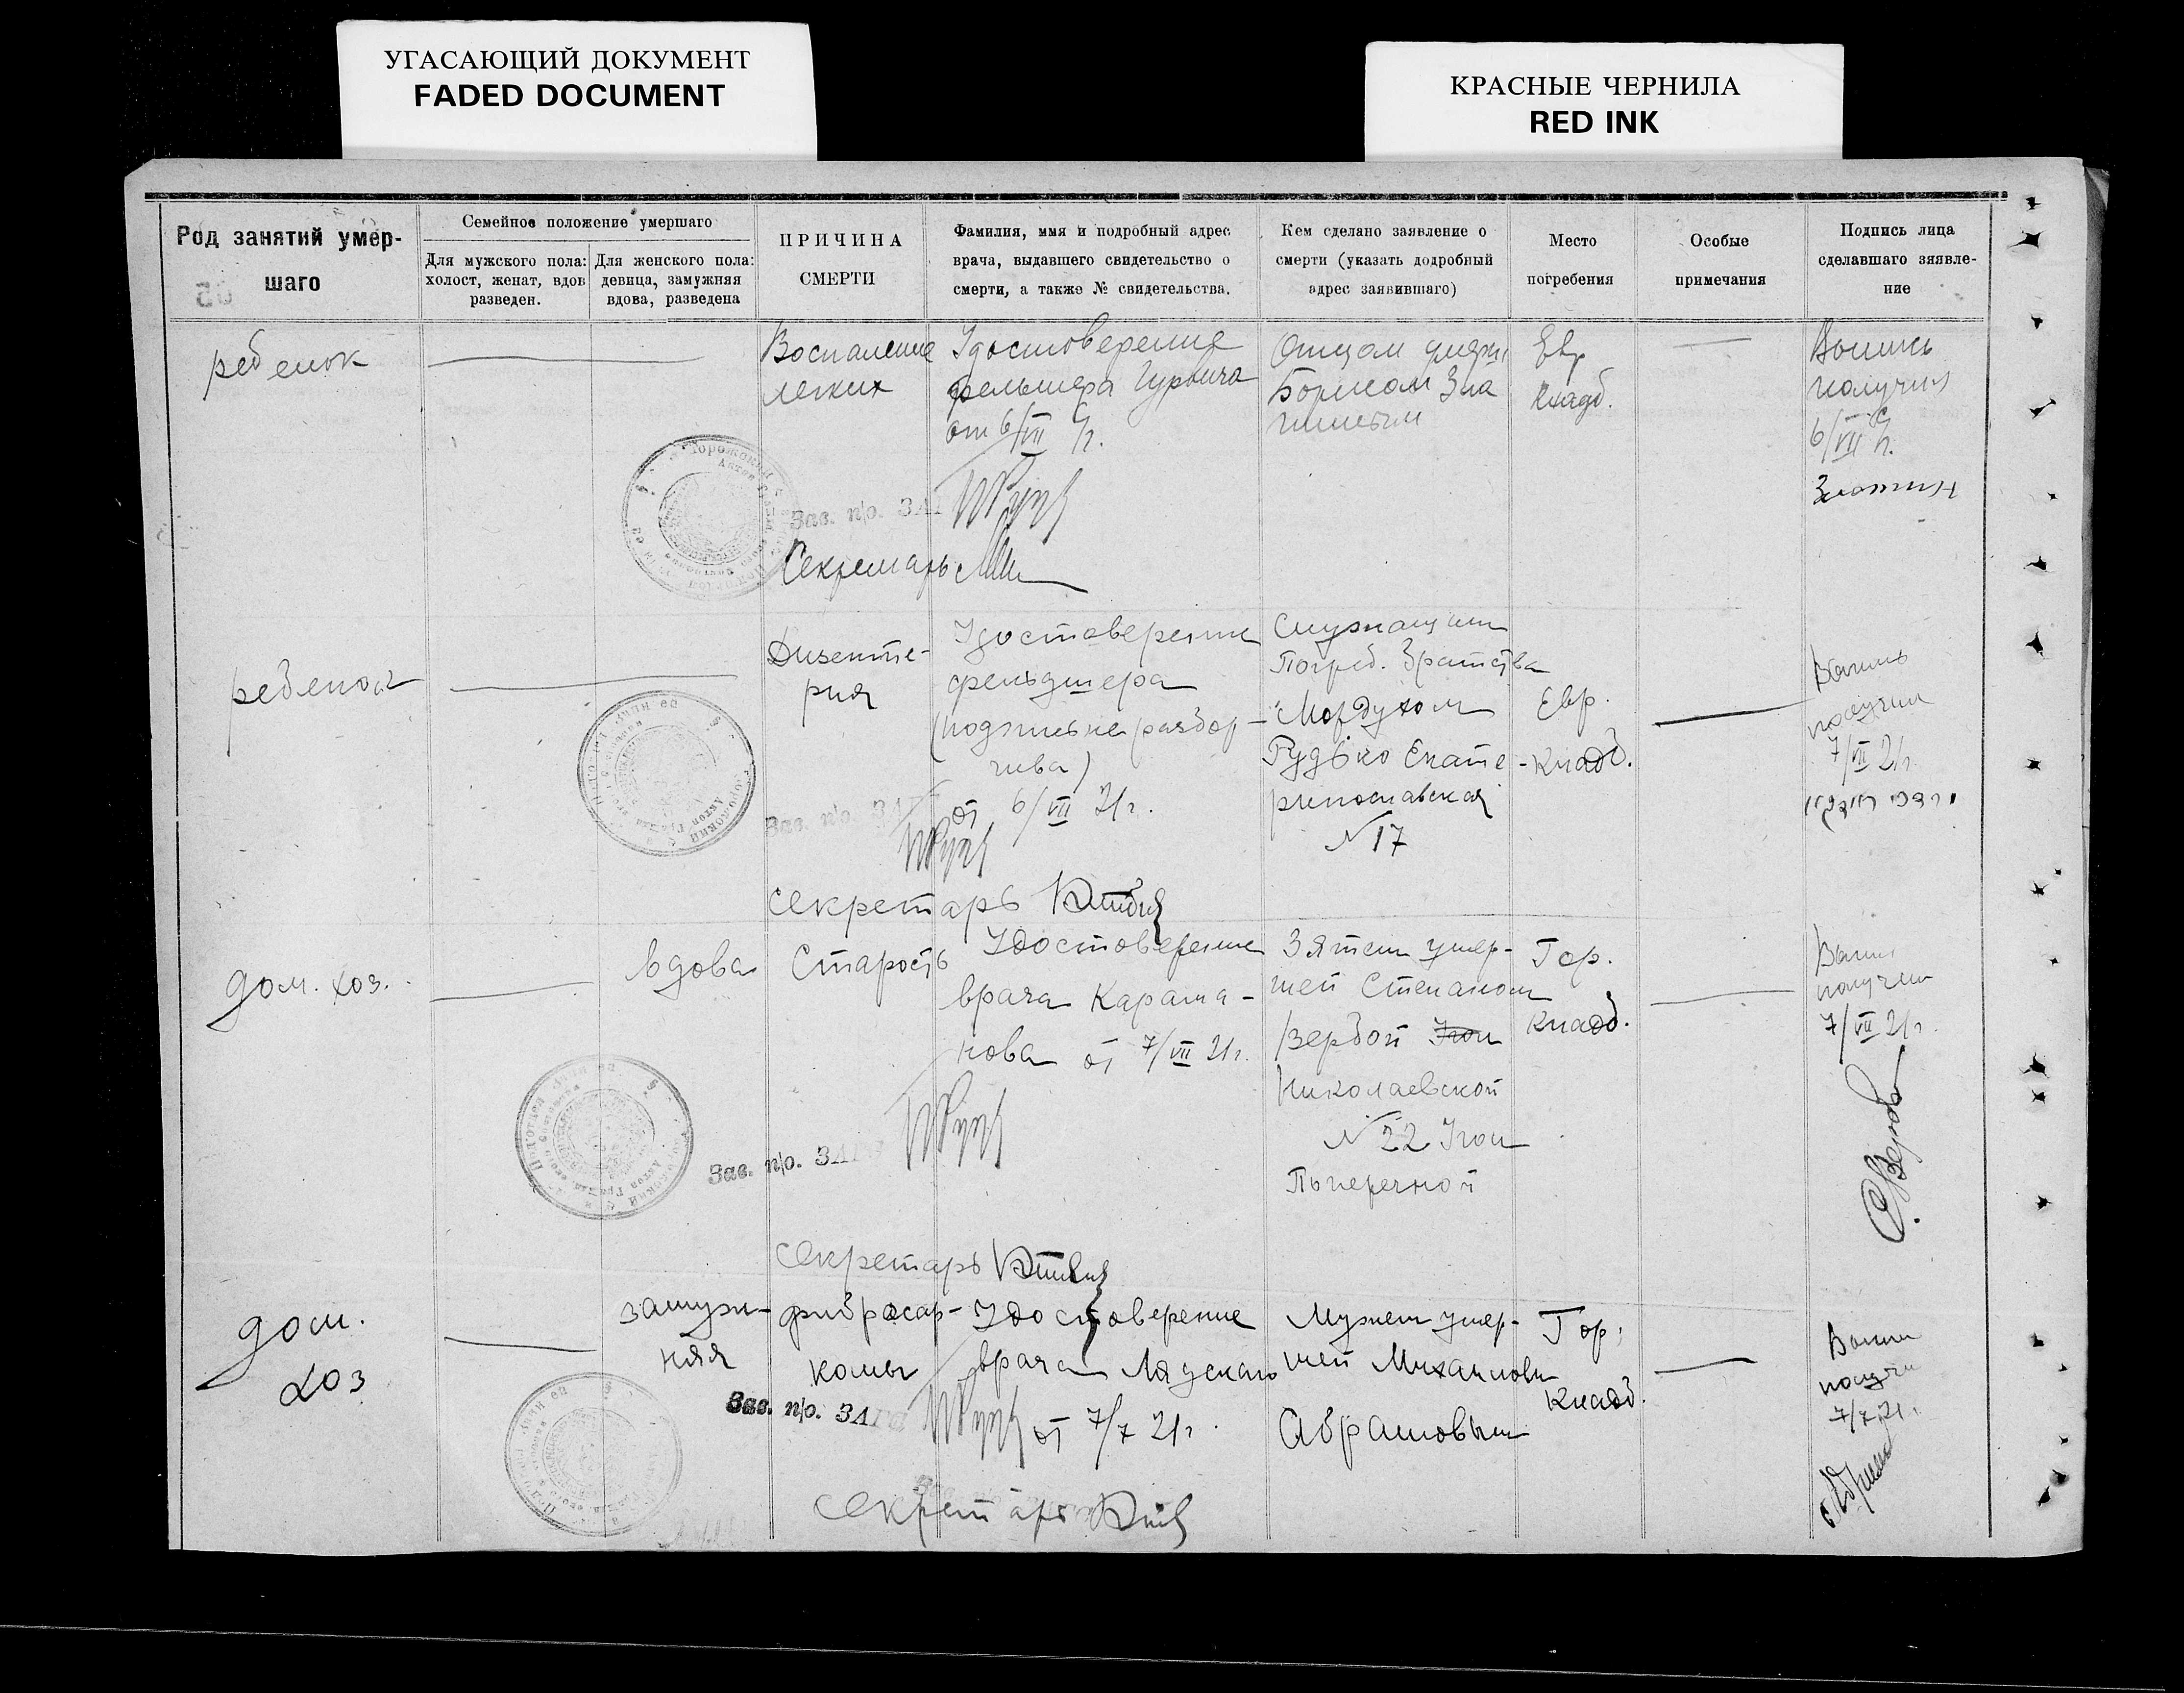 УГАСАЮЩИЙ ДОКУМЕНТ
FADED DOCUMENT
КРАСНЫЕ ЧЕРНИЛА
RED INK
Род занятий умер-
шаго
Семейное положение умершаго
Для мужского пола:
холост, женат, вдов
разведен.
Для женского пола:
девица, замужняя
вдова, разведена
ПРИЧИНА
СМЕРТИ
Фамилия, имя и подробный адрес
врача, выдавшего свидетельство о
смерти, а также № свидетельства.
Кем сделано заявление о
смерти (указать додробный
адрес заявившаго)
Место
погребения
Особые
примечания
Подпись лица
сделавшаго зяявле-
ние
ребенок
Воспаление
легких
Удостоверение
фельшера Гурвича
от 6/VII с/г.
Отцом
Борисом Зла
Евр
Кладб.
получил
6/VII с/г.
Зав. п/о. ЗАГ
Секретарь
ребенок
Дизенте-
рия
Удостоверение
фельдшера
(подпись не разбор-
чива)
от 6/VII 21г.
Служащим
Погреб. Братства
Мордухом
Гудько Екате-
ринославская
N 17
Евр.
Кладб.
получил
7/VII 21г.
Зав. п/о. ЗАГ
Секретарь
дом. хоз.
вдова
Старость
Удостоверение
врача Карама-
нова от 7/VII 21г.
Зятем умер-
шей Степаном
Вербой
Николаевской
N 22 Угол
Поперечной
Гор.
Кладб.
получил
7/VII 21г.
Зав. п/о. ЗАГС
Секретарь
дом.
хоз
замуж-
няя
фибросар-
комы
Удостоверение
врача Лядскаго
от 7/7 21г.
Мужем умер-
шей Михаилом
Абрамовым
Гор.
Кладб.
7/7 21г.
Зав. п/о. ЗАГС
Секретарь